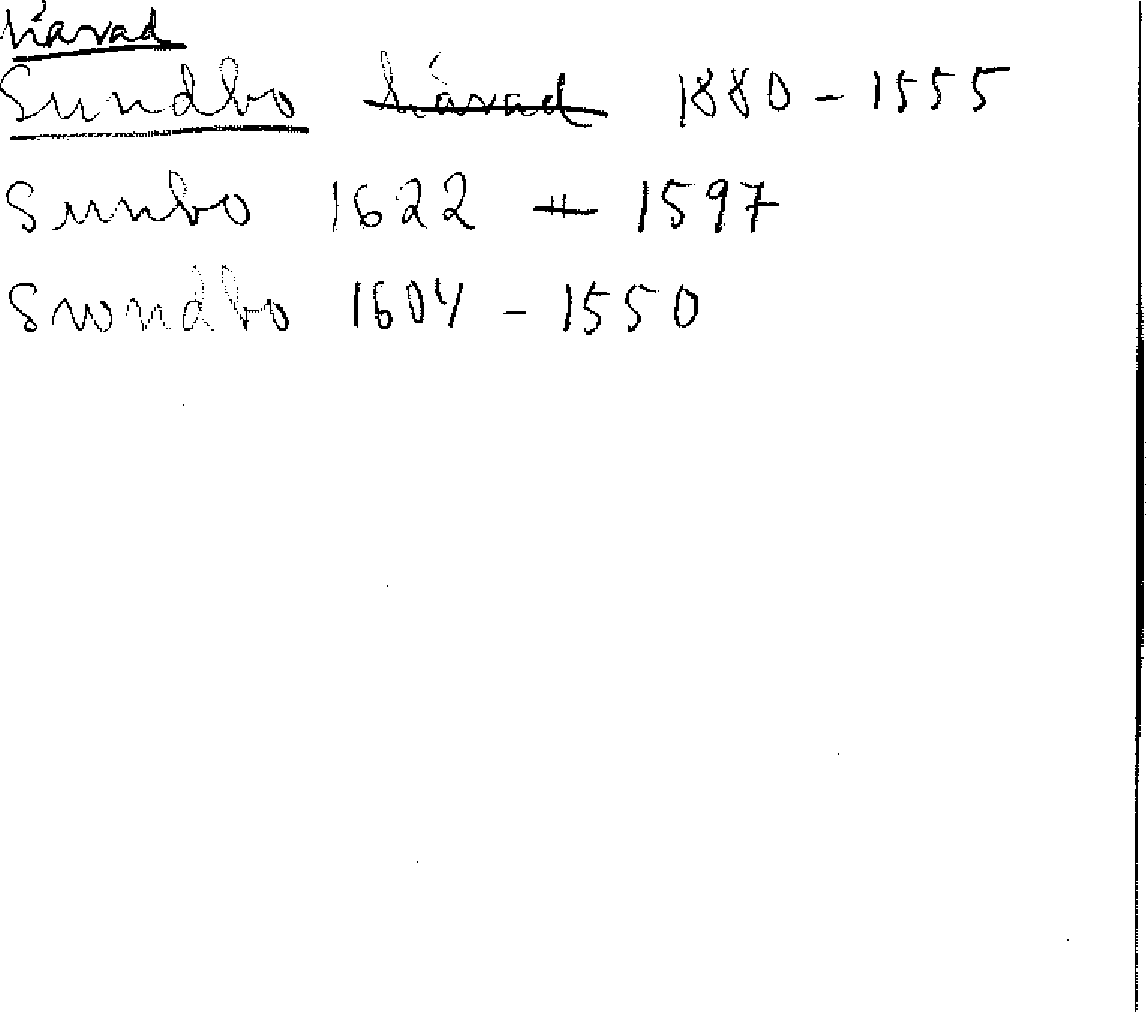 hávad
Sundbo hávad 1880 - 1555
Sunbo 1622 # 1597
Swondbo 1604 - 1550